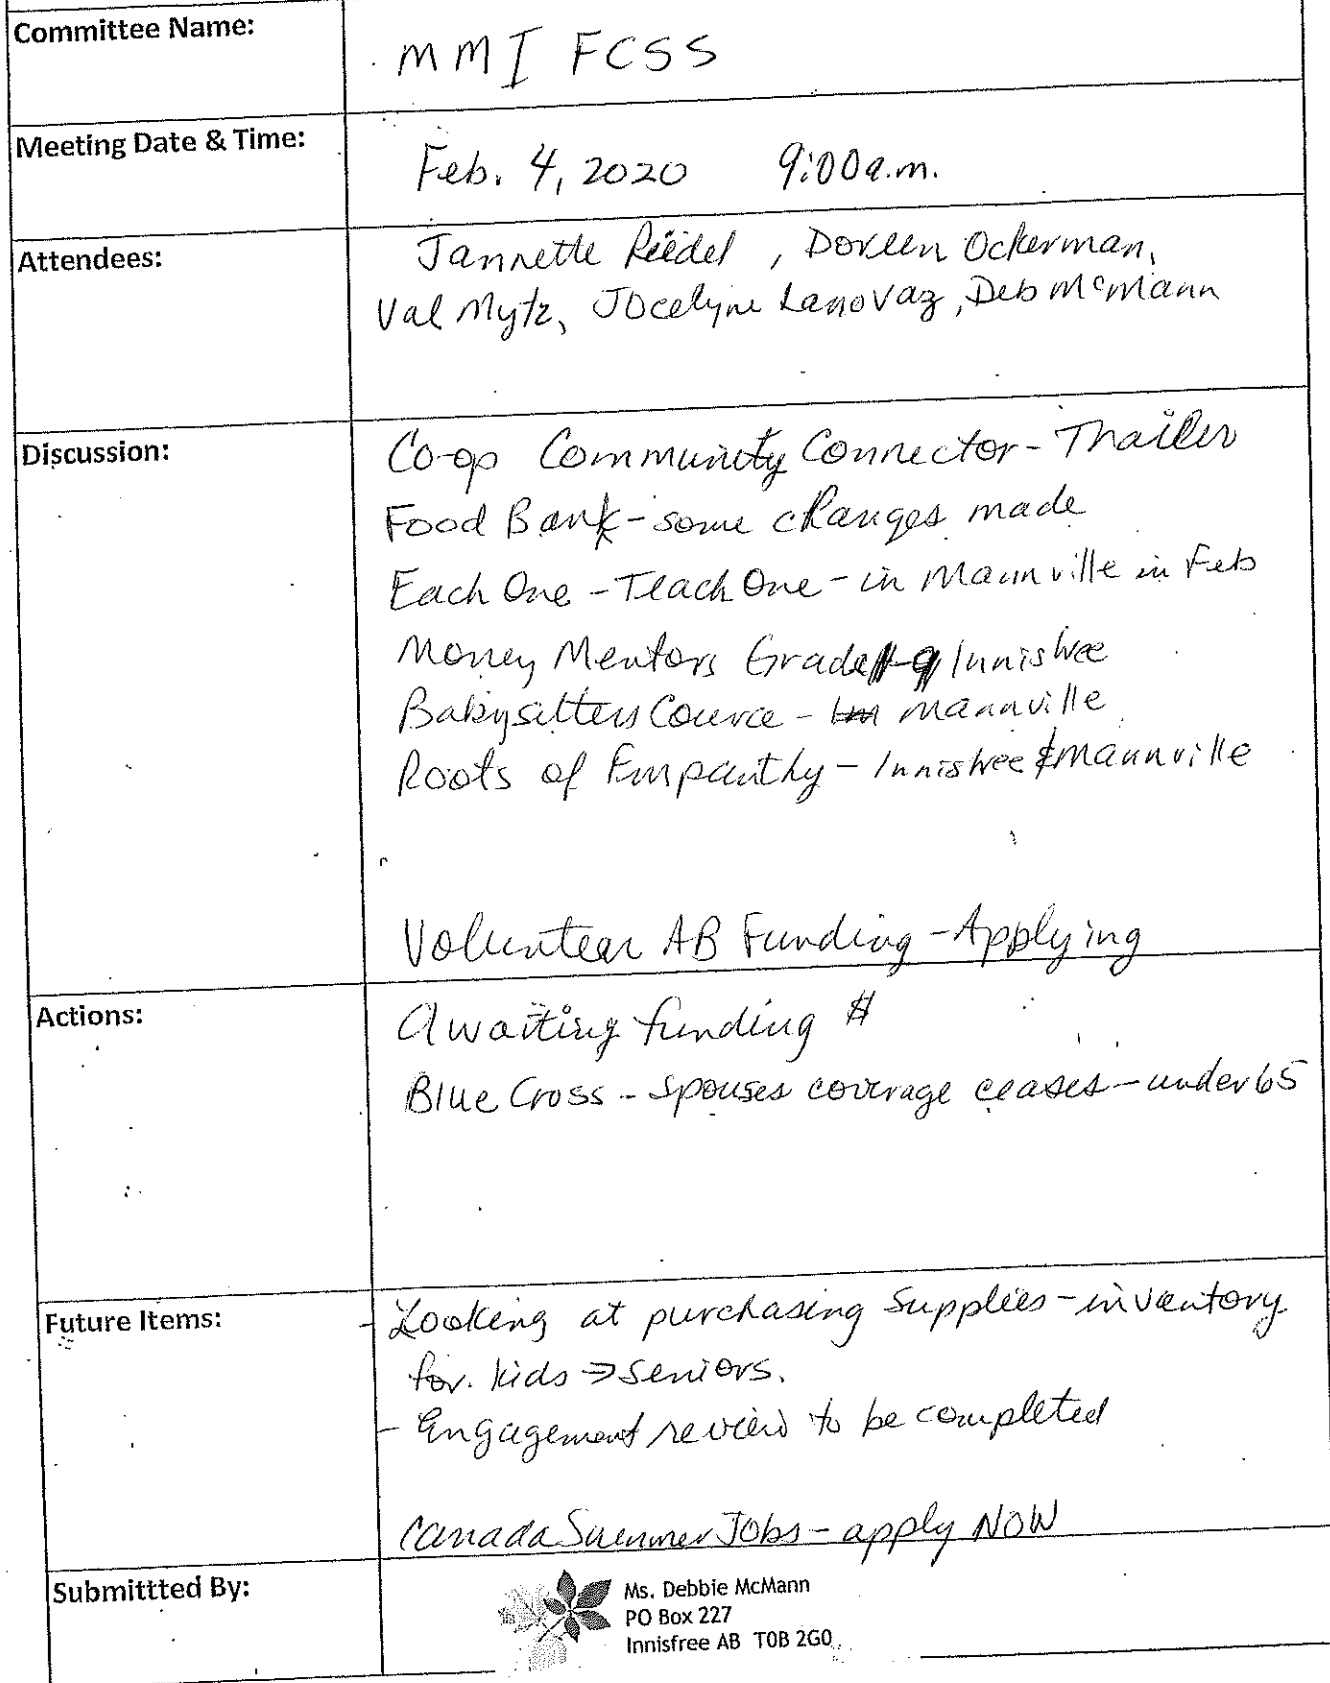 Committee Name:
MMI FCSS
Meeting Date & Time:
Feb. 4, 2020 9:00 a.m.
Attendees:
Jannette Riedel, Doreen Ockerman,
Val Mytz, Jocelyne Lanovaz, Deb McMann
Discussion:
Co-op Community Connector - Thailer
Food Bank - some changes made
Each One - Teach One - in Mannville in Feb
Money Mentors Grade 9 Innisfree
Babysitters Cource - Mannville
Roots of Empanthy - Innisfree & Mannville
Volunteer AB Funding - Applying
Actions:
Awaiting funding $
Blue Cross - Spouses coverage ceases - under 65
Future Items:
- Looking at purchasing Supplies - inventory
for kids → Seniors.
- Engagement review to be completed
Canada Summer Jobs - apply NOW
Submittted By:
Ms. Debbie McMann
PO Box 227
Innisfree AB T0B 2G0